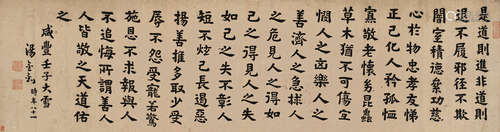 是道則進非道則
退不履邪徑不欺
闇室積德絫功慈
心於物忠孝友悌
正己化人矜孤恤
寡敬老懷幼昆蟲
草木猶不可傷宜
憫人之凶樂人之
善濟人之急捄人
之危見人之得如
己之得見人之失
如己之失不彰人
短不炫己長遏惡
揚善推多取少受
辱不怨受寵若驚
施恩不求報與人
不追悔所謂善人
人皆敬之天道佑
之
咸豐壬子大雪
湯金釗 時年八十一